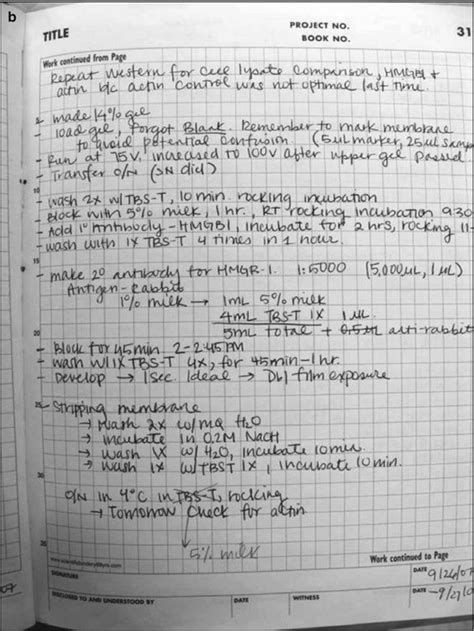 b
TITLE
PROJECT NO.
BOOK NO.
31
Work continued from Page
Repeat Western for cell lysate comparison, HMGB1 &
actin b/c actin control was not optimal last time.
made 14% gel
- load gel, forgot Blank. Remember to mark membrane
to avoid potential confusion. (5uL marker, 25uL sample
- Run at 75V, increased to 100V after upper gel passed
- Transfer O/N (SN did)
10
- Wash 2x w/TBS-T, 10 min. rocking incubation
- Block with 5% milk, 1 hr., RT rocking incubation 930
- Add 1° Antibody - HMGB1, incubate for 2 hrs, rocking 11-
- wash with 1X TBS-T 4 times in 1 hour.
15
- make 2° antibody for HMGB-1. 1:5000 (5,000uL, 1uL)
Antigen-Rabbit
1% milk → 1mL 5% milk
4mL TBS-T 1X 1uL
20
5mL total + 0.5uL anti-rabbit
- Block for 45min 2-2:45PM
- Wash w/1X TBS-T 4x, for 45min-1hr.
- Develop → 1sec. Ideal → film exposure
25
- Stripping membrane
→ Wash 2x w/mQ H2O
→ incubate in 0.2M NaOH
→ Wash 1X w/ H2O, incubate 10min.
30
→ Wash 1X w/TBST 1X, incubate 10min.
O/N in 4°C in TBS-T, rocking
→ Tomorrow check for actin
35
5% milk
Work continued to Page
SIGNATURE
DATE 9/26/07
DISCLOSED TO AND UNDERSTOOD BY
DATE
WITNESS
DATE